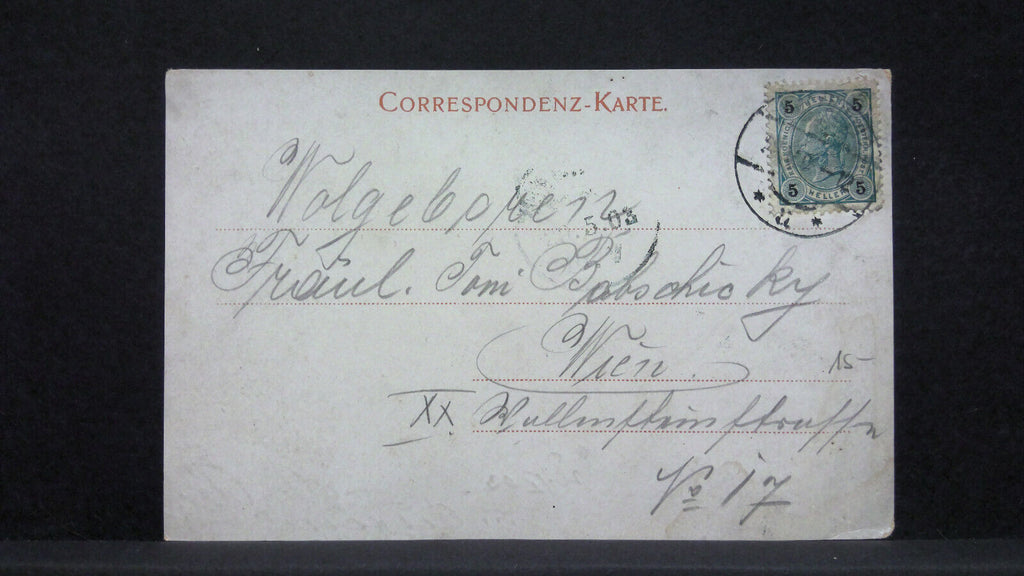 CORRESPONDENZ-KARTE.
5 5
5 5
HELLER
Wolgeboren
5.03
1
Fräul. Toni Babschicky
Wien.
15
XX Wallensteinstrasse
No 17